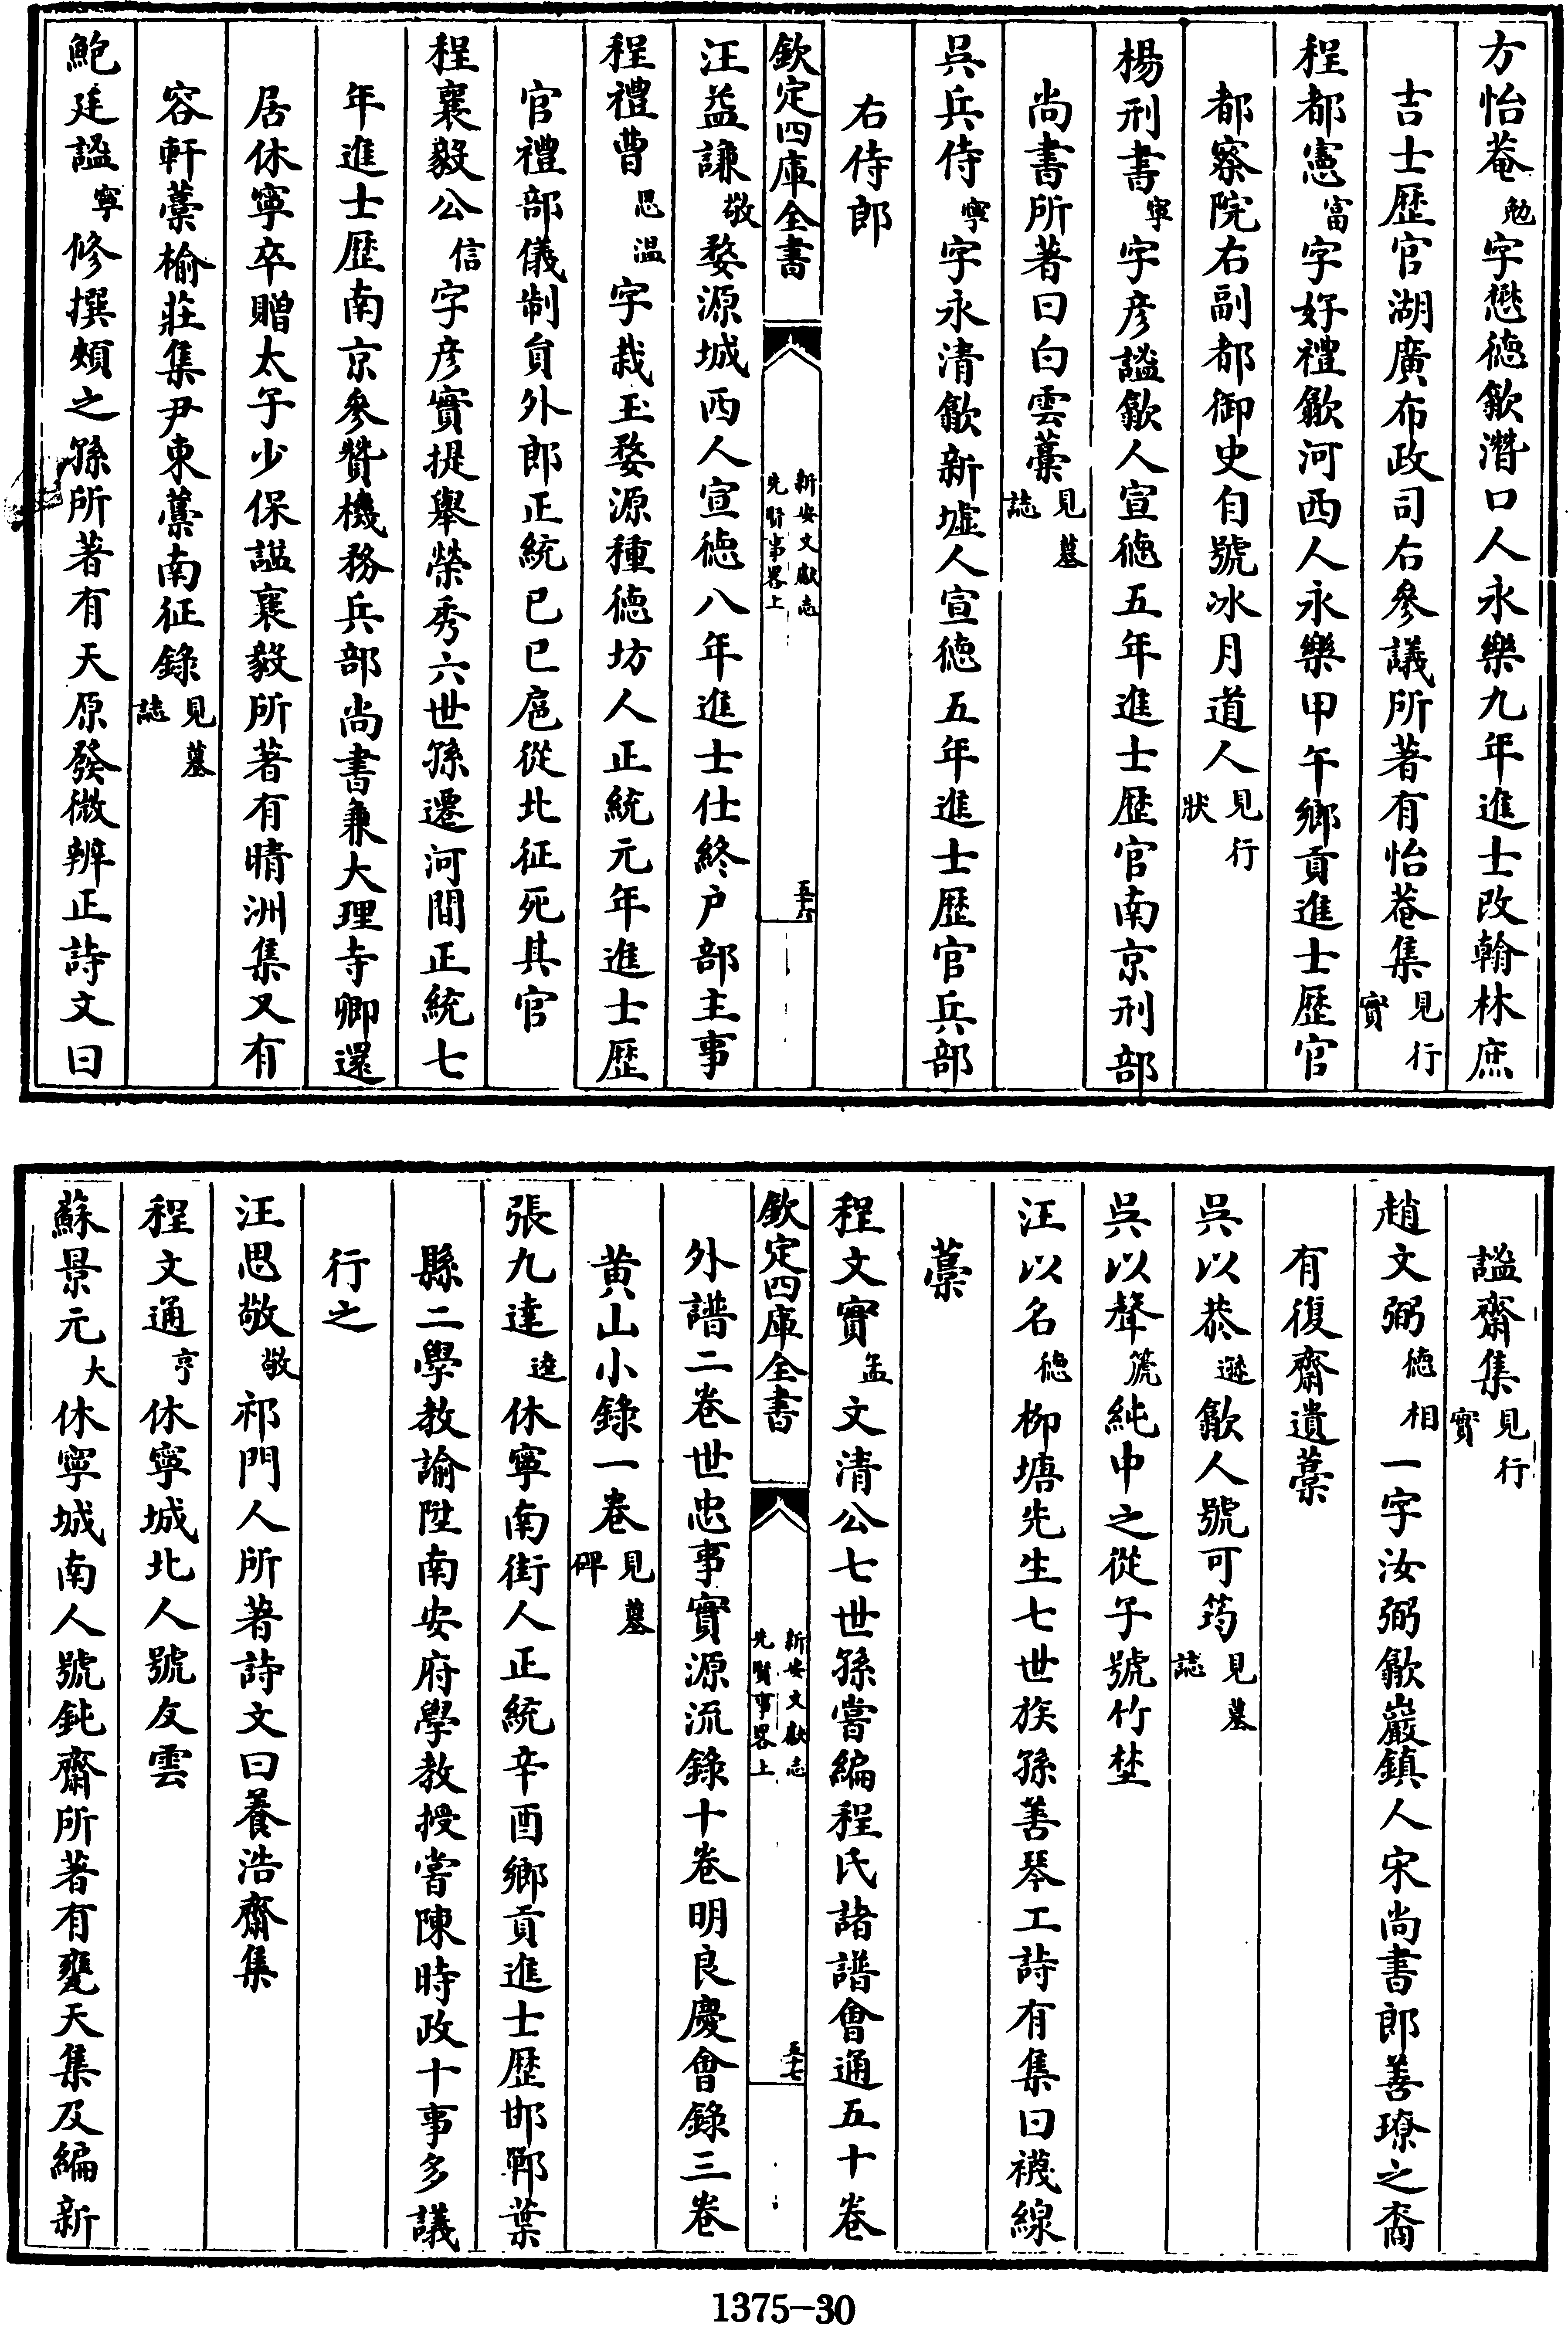 方怡菴勉字懋徳歙潛口人永樂九年進士改翰林庶
吉士歴官湖廣布政司右參議所著有怡菴集見行實
程都憲富字好禮歙河西人永樂甲午鄉貢進士歴官
都察院右副都御史自號冰月道人見行狀
楊刑書寧字彦謐歙人宣徳五年進士歴官南京刑部
尚書所著曰白雲藁見墓誌
吳兵侍寧字永清歙新墟人宣徳五年進士歴官兵部
右侍郎
欽定四庫全書
新安文獻志
先賢事畧上
五十六
汪益謙敬婺源城西人宣徳八年進士仕終户部主事
程禮曹思溫字栽玉婺源種徳坊人正統元年進士歴
官禮部儀制員外郎正統己巳扈從北征死其官
程襄毅公信字彦實提舉榮秀六世孫遷河間正統七
年進士歴南京參贊機務兵部尚書兼大理寺卿還
居休寧卒贈太子少保諡襄毅所著有晴洲集又有
容軒藁榆莊集尹東藁南征錄見墓誌
鮑廷謐寧修撰頰之孫所著有天原發微辨正詩文曰
謐齋集見行實
趙文弼徳相一字汝弼歙巖鎮人宋尚書郎善璙之裔
有復齋遺藁
吳以恭遜歙人號可筠見墓誌
吳以聲箎純中之從子號竹埜
汪以名徳柳塘先生七世族孫善琴工詩有集曰襪線
藁
程文實孟文清公七世孫嘗編程氏諸譜會通五十卷
欽定四庫全書
新安文獻志
先賢事畧上
五十七
外譜二卷世忠事實源流錄十卷明良慶會錄三卷
黄山小錄一卷見墓碑
張九逵逵休寧南街人正統辛酉鄉貢進士歴邯鄲葉
縣二學教諭陞南安府學教授嘗陳時政十事多議
行之
汪思敬敬祁門人所著詩文曰養浩齋集
程文通亨休寧城北人號友雲
蘇景元大休寧城南人號鈍齋所著有甕天集及編新
1375-30